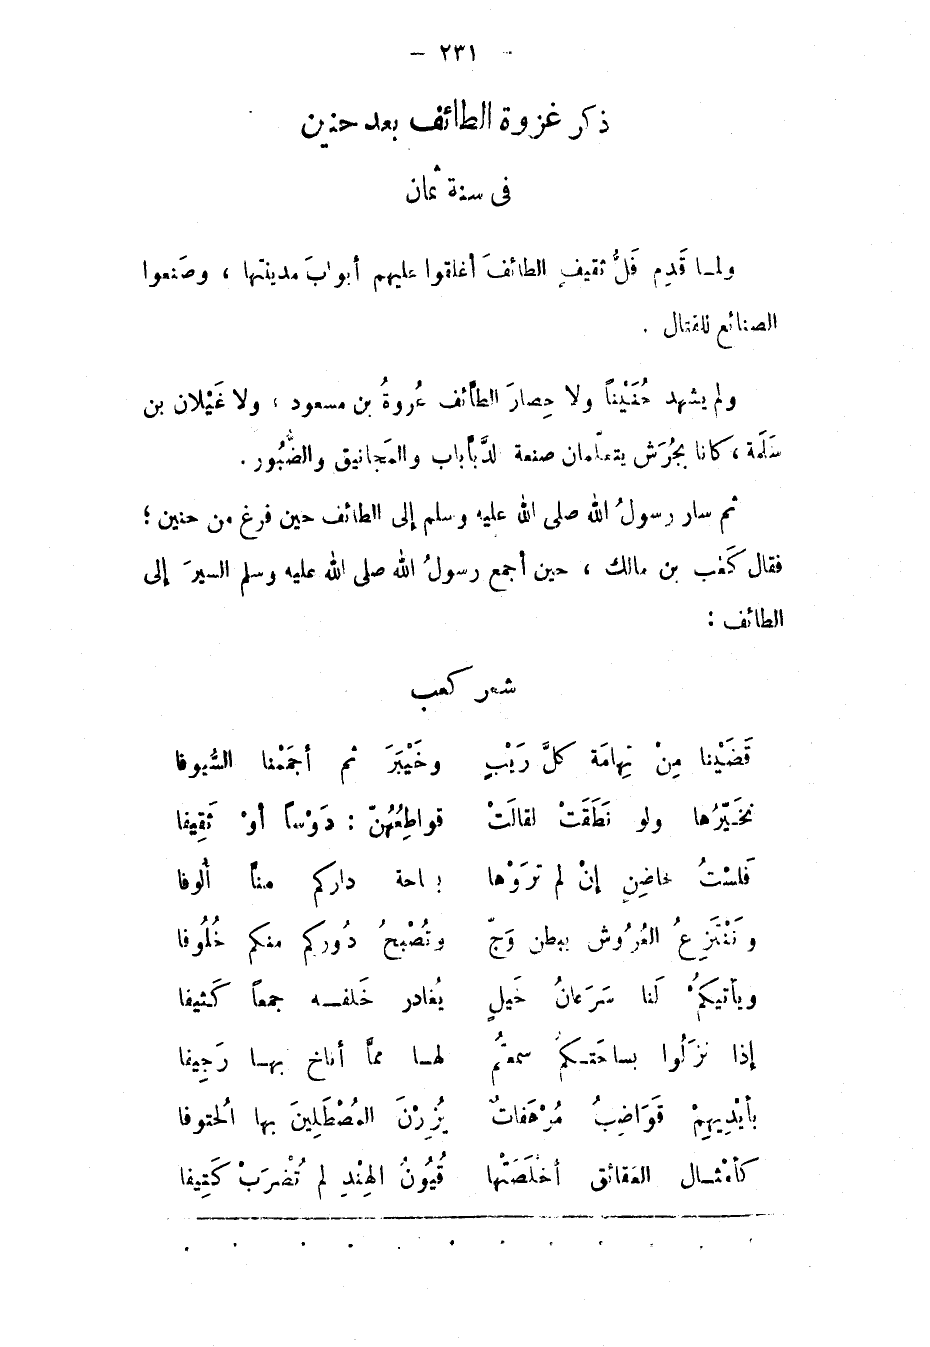 — ٢٣١ —
ذكر غزوة الطائف بعد حنين
فى سنة ثمان
ولمـا قَدِم فَلُّ ثقيفٍ الطائفَ أغلقوا عليهم أبوابَ مدينتها ، وصَنعوا
الصنائع للقتال .
ولم يشهد حُنَيْناً ولا حِصارَ الطَّائف عُروةُ بن مسعود ، ولا غَيْلان بن
سَلَمة ، كانا بجُرَش يتعلّمان صنعة الدَّبَّابات والمَجانيق والضُّبُور .
ثم سار رسولُ الله صلى الله عليه وسلم إلى الطائف حين فرغ من حنين ؛
فقال كَعْب بن مالك ، حين أجمع رسولُ الله صلى الله عليه وسلم السيرَ إلى
الطائف :
شعر كعب
قَضَيْنا مِنْ تِهامَة كلَّ رَيْبٍ وخَيْبَرَ ثم أجمَمْنا السُّيوفا
نخَـيّرُها ولو نَطَقَتْ لقالَتْ قواطِعُهُنّ : دَوْساً أوْ ثَقِيفا
فَلسْتُ لحاضِنٍ إنْ لم تَرَوْها بساحة داركم منَّا أُلوفا
وَنَنْتَزِعُ العُرُوش ببطن وَجّ وتُصْبحُ دُوركم منكم خُلُوفا
ويأتيكمُ لَنا سَرَعانُ خَيلٍ يُغادر خَلفـه جمعاً كَثيفا
إذا نزَلُوا بساحَتـكمُ سمعتُم لهـا ممَّا أناخ بهـا رَجِيفا
بأيْدِيهِمْ قَوَاضِبُ مُرْهَفاتٌ يُزِرْنَ المُصْطَلِينَ بها الحُتوفا
كأمْثـال العَقائق أخْلَصَتْها قُيُونُ الهِنْدِ لم تُضْرَبْ كَتِيفا